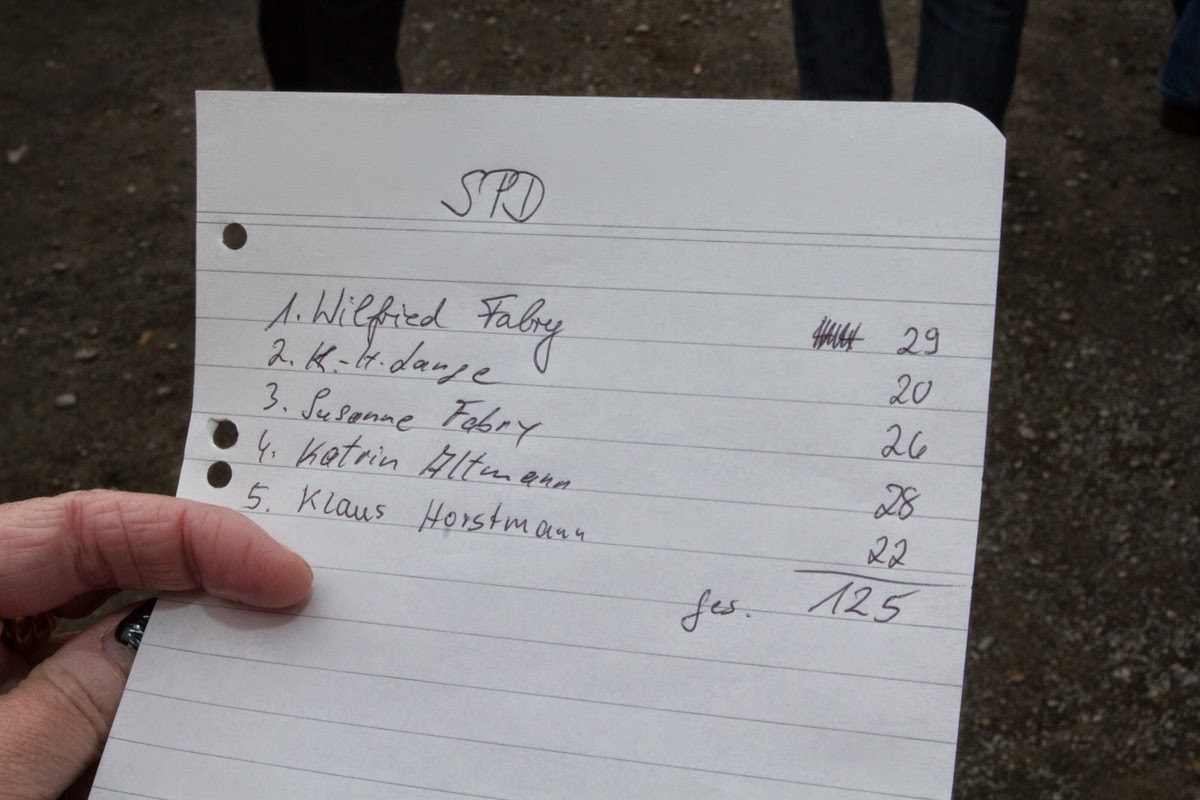 SPD
1. Wilfried Fabry 29
2. K.-H. Lange 20
3. Susanne Fabry 26
4. Katrin Altmann 28
5. Klaus Horstmann 22
ges. 125